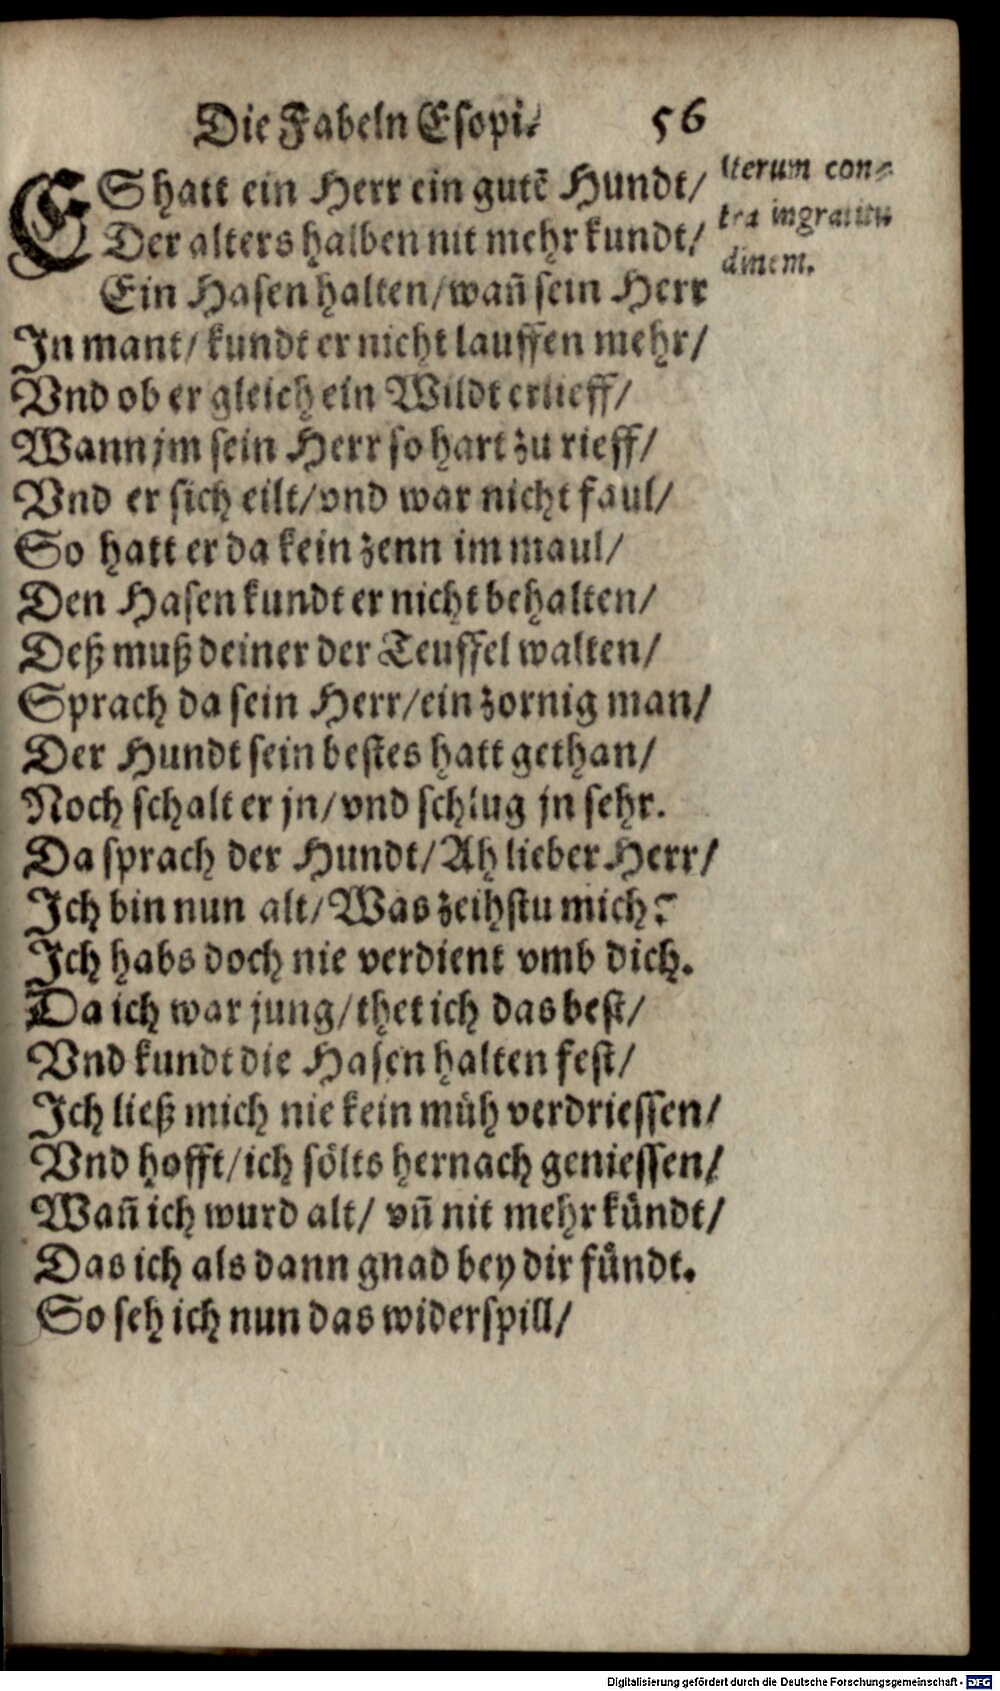 Die Fabeln Esopi. 56
ES hatt ein Herr ein gutē Hundt/
Der alters halben nit mehr kundt/
Ein Hasen halten/wañ sein Herr
In mant/kundt er nicht lauffen mehr/
Vnd ob er gleich ein Wildt erlieff/
Wann jm sein Herr so hart zu rieff/
Vnd er sich eilt/vnd war nicht faul/
So hatt er da kein zenn im maul/
Den Hasen kundt er nicht behalten/
Deß muß deiner der Teuffel walten/
Sprach da sein Herr/ein zornig man/
Der Hundt sein bestes hatt gethan/
Noch schalt er jn/vnd schlug jn sehr.
Da sprach der Hundt/Ah lieber Herr/
Ich bin nun alt/Was zeihstu mich?
Ich habs doch nie verdient vmb dich.
Da ich war jung/thet ich das best/
Vnd kundt die Hasen halten fest/
Ich ließ mich nie kein müh verdriessen/
Vnd hofft/ich sölts hernach geniessen/
Wañ ich wurd alt/ vñ nit mehr kündt/
Das ich als dann gnad bey dir fündt.
So seh ich nun das widerspill/
Iterum con-
tra ingratitu
dinem.
Digitalisierung gefördert durch die Deutsche Forschungsgemeinschaft - DFG